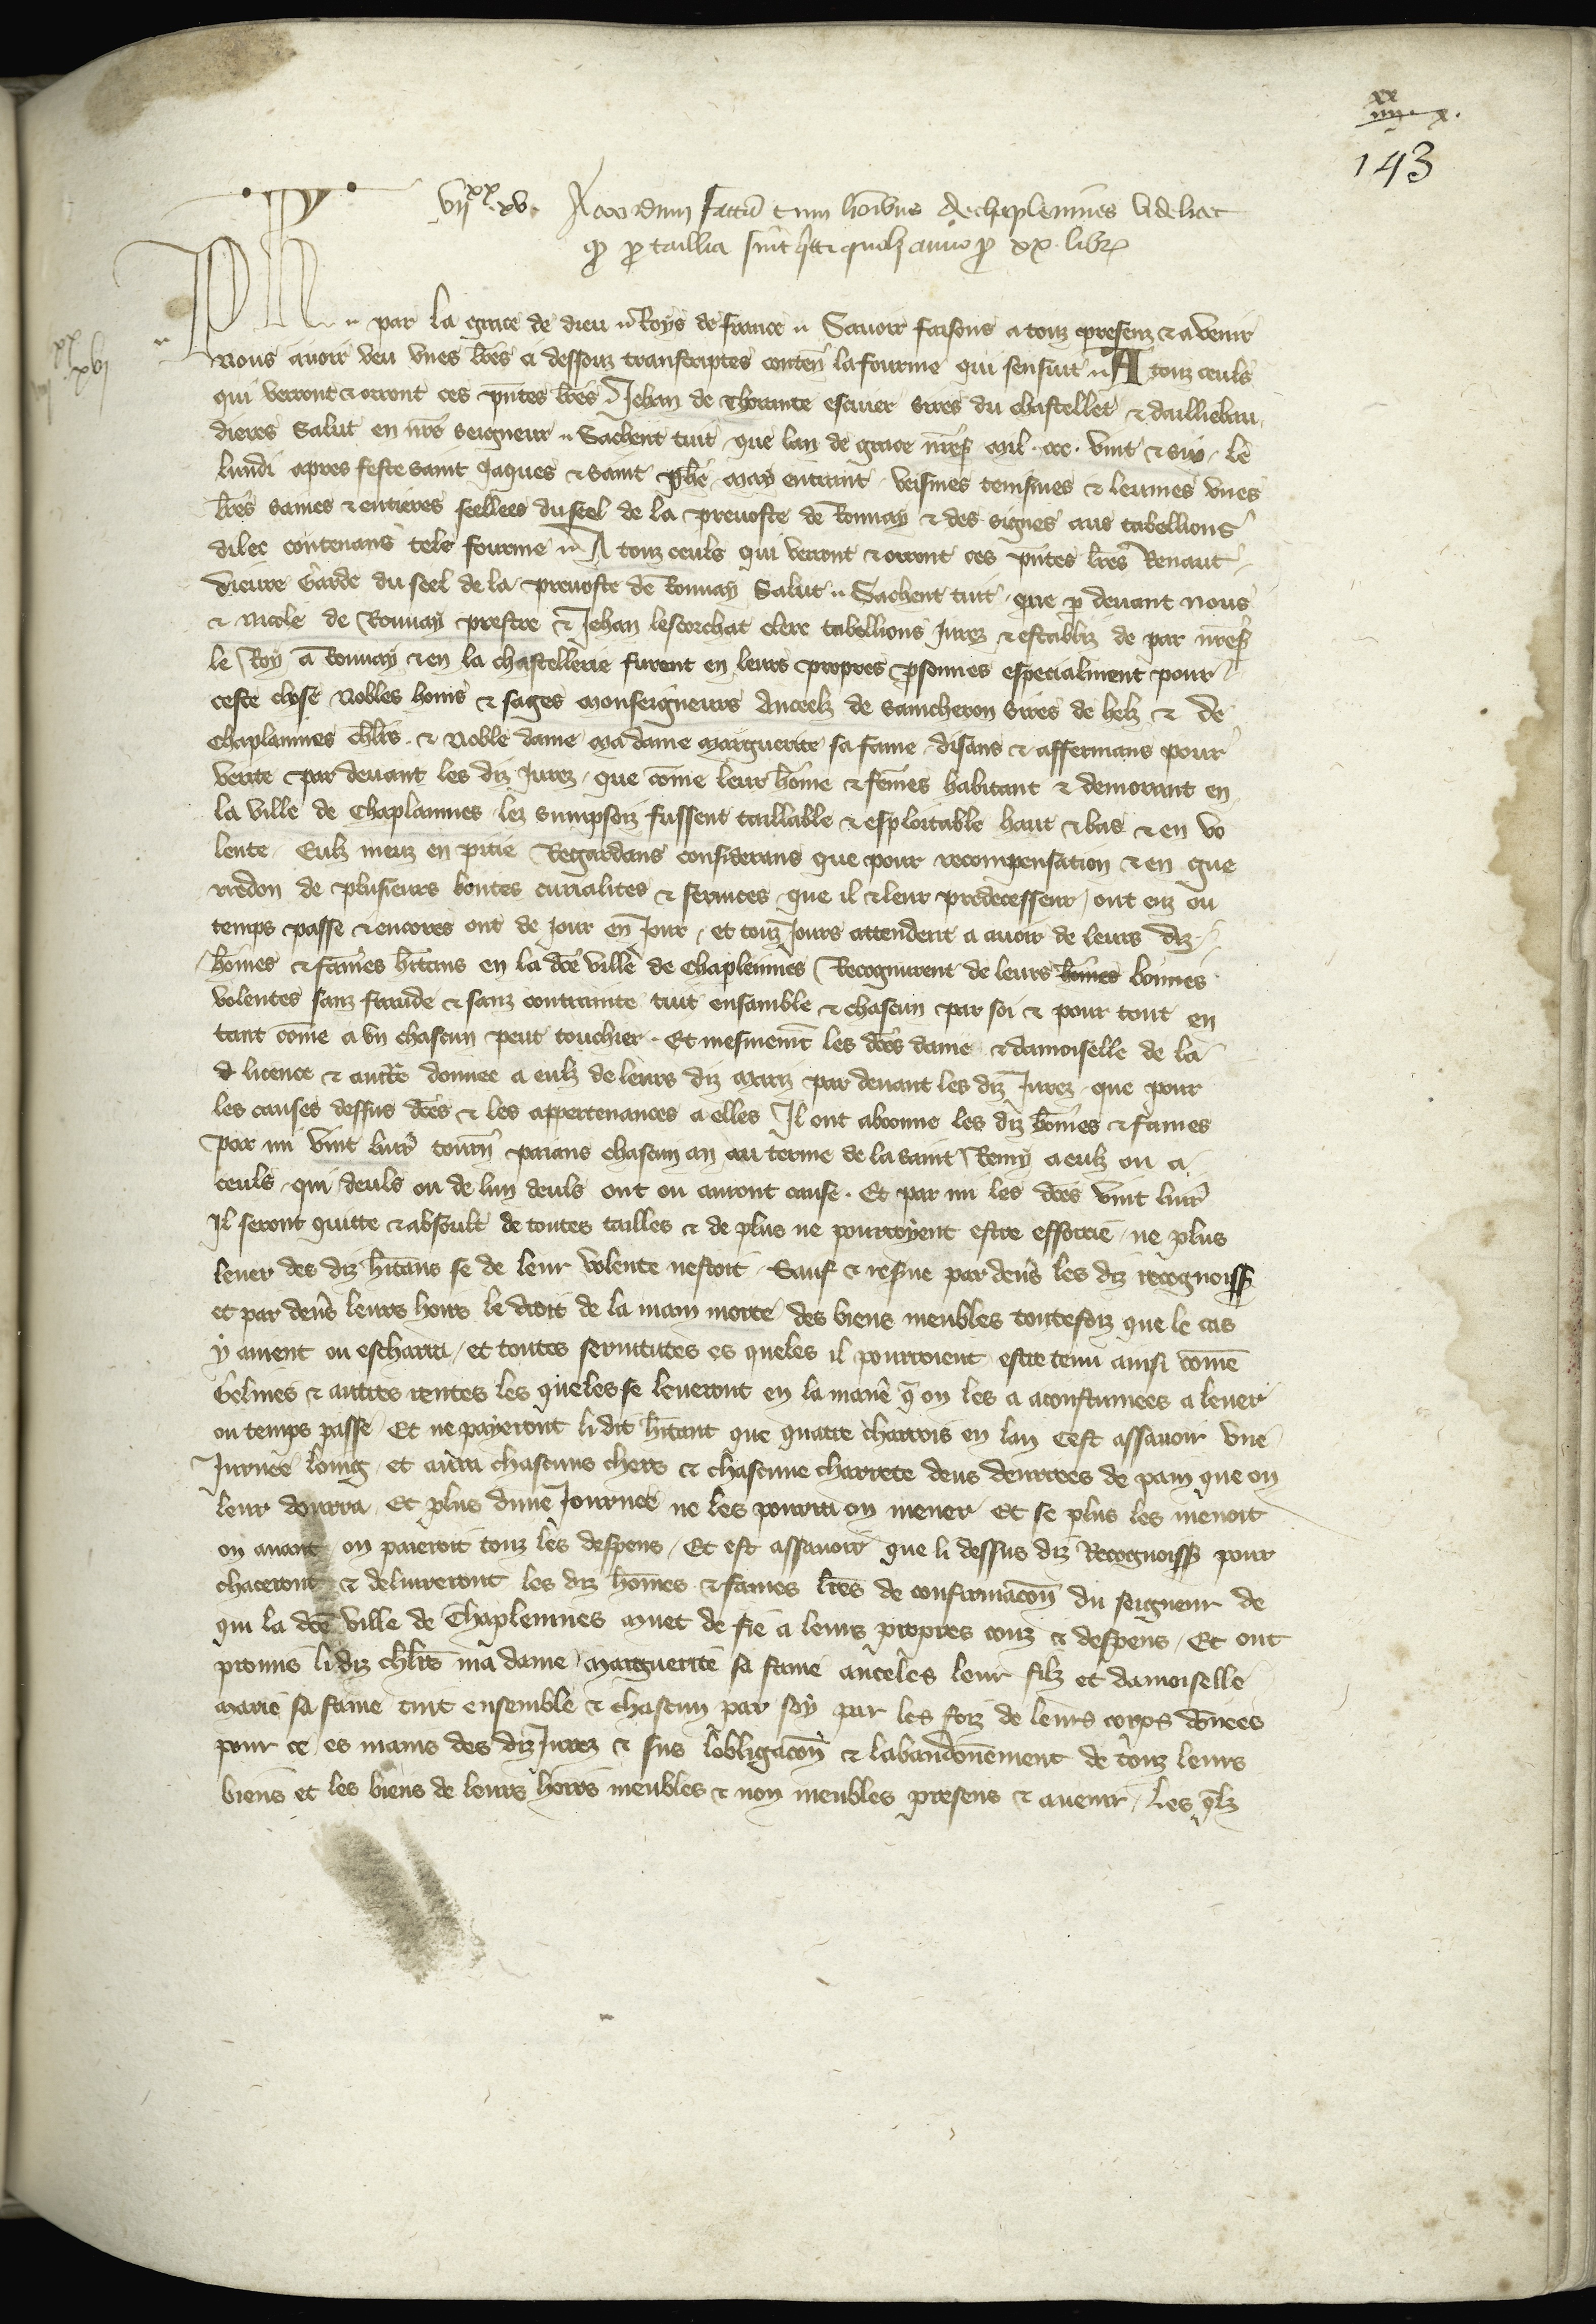 xx
iiii x.
143
vii xx xv. Accordum factum cum hominibus de Chaplennies videlicet
quod pro taillia sint quitti quolibet anno pro xx. libr
xx
xvi
Ph. par la grace de dieu Roys de france Savoir faisons a touz presenz & avenir
Nous avoir veu unes lres ci dessouz transcriptes conten la fourme qui sensuit A touz ceuls
qui verront & orront ces pntes lres Jehan de Thorante escuier sires du chastellet & dailliebau
dieres Salut en nre seigneur Sachent tuit que lan de grace nre s mil ccc vint & six le
lundi apres feste saint Jaques & saint phe may entrant veismes tenismes & leumes unes
lres saines & entieres seellees du seel de la prevoste de Ronnay & des signes aus tabellions
dilec contenans tele fourme A touz ceuls qui verront & orront ces pntes lres Renaut
Garde du seel de la prevoste de Ronnay Salut Sachent tuit que p devant nous
& Nicole de Ronnay prestre & Jehan lescorchat clerc tabellions jurez & establiz de par nre s
le Roy a Ronnay & en la chastellerie furent en leurs propres psonnes especialment pour
ceste chose Nobles homs & sages monseigneurs Anceelz de saincheron sires de helz & de
Chaplaninnes chlrs & Noble dame ma dame Marguerite sa fame disans & affermans pour
verite par devant les diz jurez que come leur home & femes habitant & demorant en
la ville de Chaplannes lez Sumpsoiz fussent taillable & esploitable haut & bas & en vo
lente Eulz meuz en pitie Regardans considerans que pour recompensation & en gue
rredon de plusieurs bontes curialites & services que il & leur predecesseur ont euz ou
temps passe & encores ont de jour en jour et touz jours attendent a avoir de leurs diz
homes & fames hitans en la dce ville de Chaplennes Recognurent de leurs bones bonnes
volentes sanz fraude & sanz contrainte tuit ensamble & chascun par soi & pour tout en
tant come a un chascun peut touchier Et mesmemt les dces dame & damoiselle de la
d licence & aucte donnee a eulz de leurs diz mariz par devant les diz jurez que pour
les causes dessus dces & les appertenances a elles Il ont abonne les diz homes & fames
par mi vint livr tourn paians chascun an au terme de la saint Remy a eulz ou a
ceuls qui deuls ou de lun deuls ont ou auront cause Et par mi les dces vint livr
Il seront quitte & absoult de toutes tailles & de plus ne pourroyent estre efforcie ne plus
lever des diz hitans se de leur volente nestoit Sauf & resve par devs les diz recognoiss
et par devs leurs hoirs le droit de la main morte des biens meubles toutefoiz que le cas
y avient ou escharra et toutes servitutes es queles il pourroient estre tenu ainsi come
Gelines & autres rentes les queles se leveront en la mane q on les a acoustumees a lever
ou temps passe Et ne payeront li dit hitant que quatre charrois en lan cest assavoir une
Jurnee loing et aura chascuns chers & chascune charrete deus denrees de pain que on
leur donrra Et plus dune Journee ne les pourra on mener Et se plus les menoit
on avant on paieroit touz les despens Et est assavoir que li dessus diz Recognoiss pour
chaceront & delivreront les diz homes & fames lres de confirmacon du seigneur de
qui la dce ville de Chaplennies muet de fie a leurs propres couz & despens Et ont
promis li diz chlrs ma dame Marguerite sa fame anceles leur filz et damoiselle
Marie sa fame tuit ensemble & chascun par soy par les foiz de leurs corps donees
pour ce es mains des diz jurez & sus lobligacon & labandonement de touz leurs
biens et les biens de leurs hoirs meubles & non meubles presens & avenir les qlz